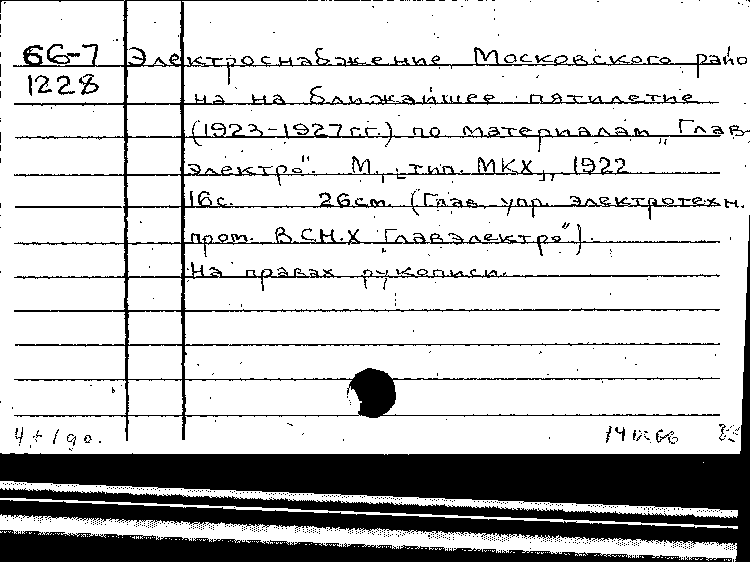 66-7 Электроснабжение Московского райо
1228
на на ближайшее пятилетие
(1923-1927гг.) по материалам „Глав-
электро". М., [тип. МКХ], 1922
16с. 26см. (Глав. упр. электротехн.
пром. В.С.Н.Х "Главэлектро").
На правах рукописи.
14 IX 66